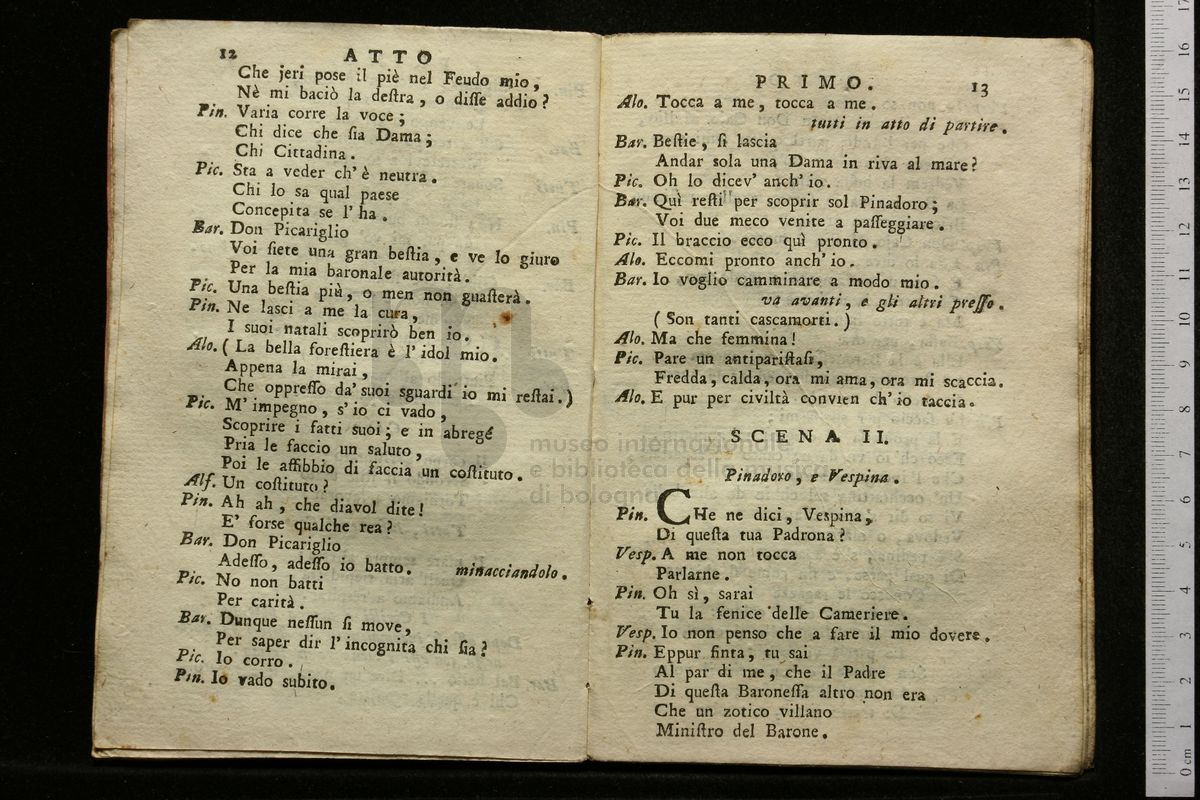 12 ATTO
Che jeri pose il piè nel Feudo mio,
Nè mi baciò la deſtra, o diſſe addio?
Pin. Varia corre la voce;
Chi dice che ſia Dama;
Chi Cittadina.
Pic. Sta a veder ch' è neutra.
Chi lo sa qual paese
Concepita se l' ha.
Bar. Don Picariglio
Voi ſiete una gran beſtia, e ve lo giuro
Per la mia baronale autorità.
Pic. Una beſtia più, o men non guaſterà.
Pin. Ne lasci a me la cura,
I suoi natali scoprirò ben io.
Alo. ( La bella foreſtiera è l' idol mio.
Appena la mirai,
Che oppreſſo da' suoi sguardi io mi reſtai.)
Pic. M' impegno, s' io ci vado,
Scoprire i fatti suoi; e in abregé
Pria le faccio un saluto,
Poi le affibbio di faccia un coſtituto.
Alf. Un coſtituto?
Pin. Ah ah, che diavol dite!
E' forse qualche rea?
Bar. Don Picariglio
Adeſſo, adeſſo io batto. minacciandolo.
Pic. No non batti
Per carità.
Bar. Dunque neſſun ſi move,
Per saper dir l' incognita chi ſia?
Pic. Io corro.
Pin. Io vado subito.
PRIMO. 13
Alo. Tocca a me, tocca a me.
tutti in atto di partire.
Bar. Beſtie, ſi lascia
Andar sola una Dama in riva al mare?
Pic. Oh lo dicev' anch' io.
Bar. Quì reſti per scoprir sol Pinadoro;
Voi due meco venite a paſſeggiare.
Pic. Il braccio ecco quì pronto.
Alo. Eccomi pronto anch' io.
Bar. Io voglio camminare a modo mio.
va avanti, e gli altri preſſo.
( Son tanti cascamorti.)
Alo. Ma che femmina!
Pic. Pare un antipariſtaſi,
Fredda, calda, ora mi ama, ora mi scaccia.
Alo. E pur per civiltà convien ch' io taccia.
SCENA II.
Pinadoro, e Vespina.
Pin. CHe ne dici, Vespina,
Di queſta tua Padrona?
Vesp. A me non tocca
Parlarne.
Pin. Oh sì, sarai
Tu la fenice delle Cameriere.
Vesp. Io non penso che a fare il mio dovere.
Pin. Eppur finta, tu sai
Al par di me, che il Padre
Di queſta Baroneſſa altro non era
Che un zotico villano
Miniſtro del Barone.
museo internazionale
e biblioteca della musica
di bologna
0 cm 1 2 3 4 5 6 7 8 9 10 11 12 13 14 15 16 17